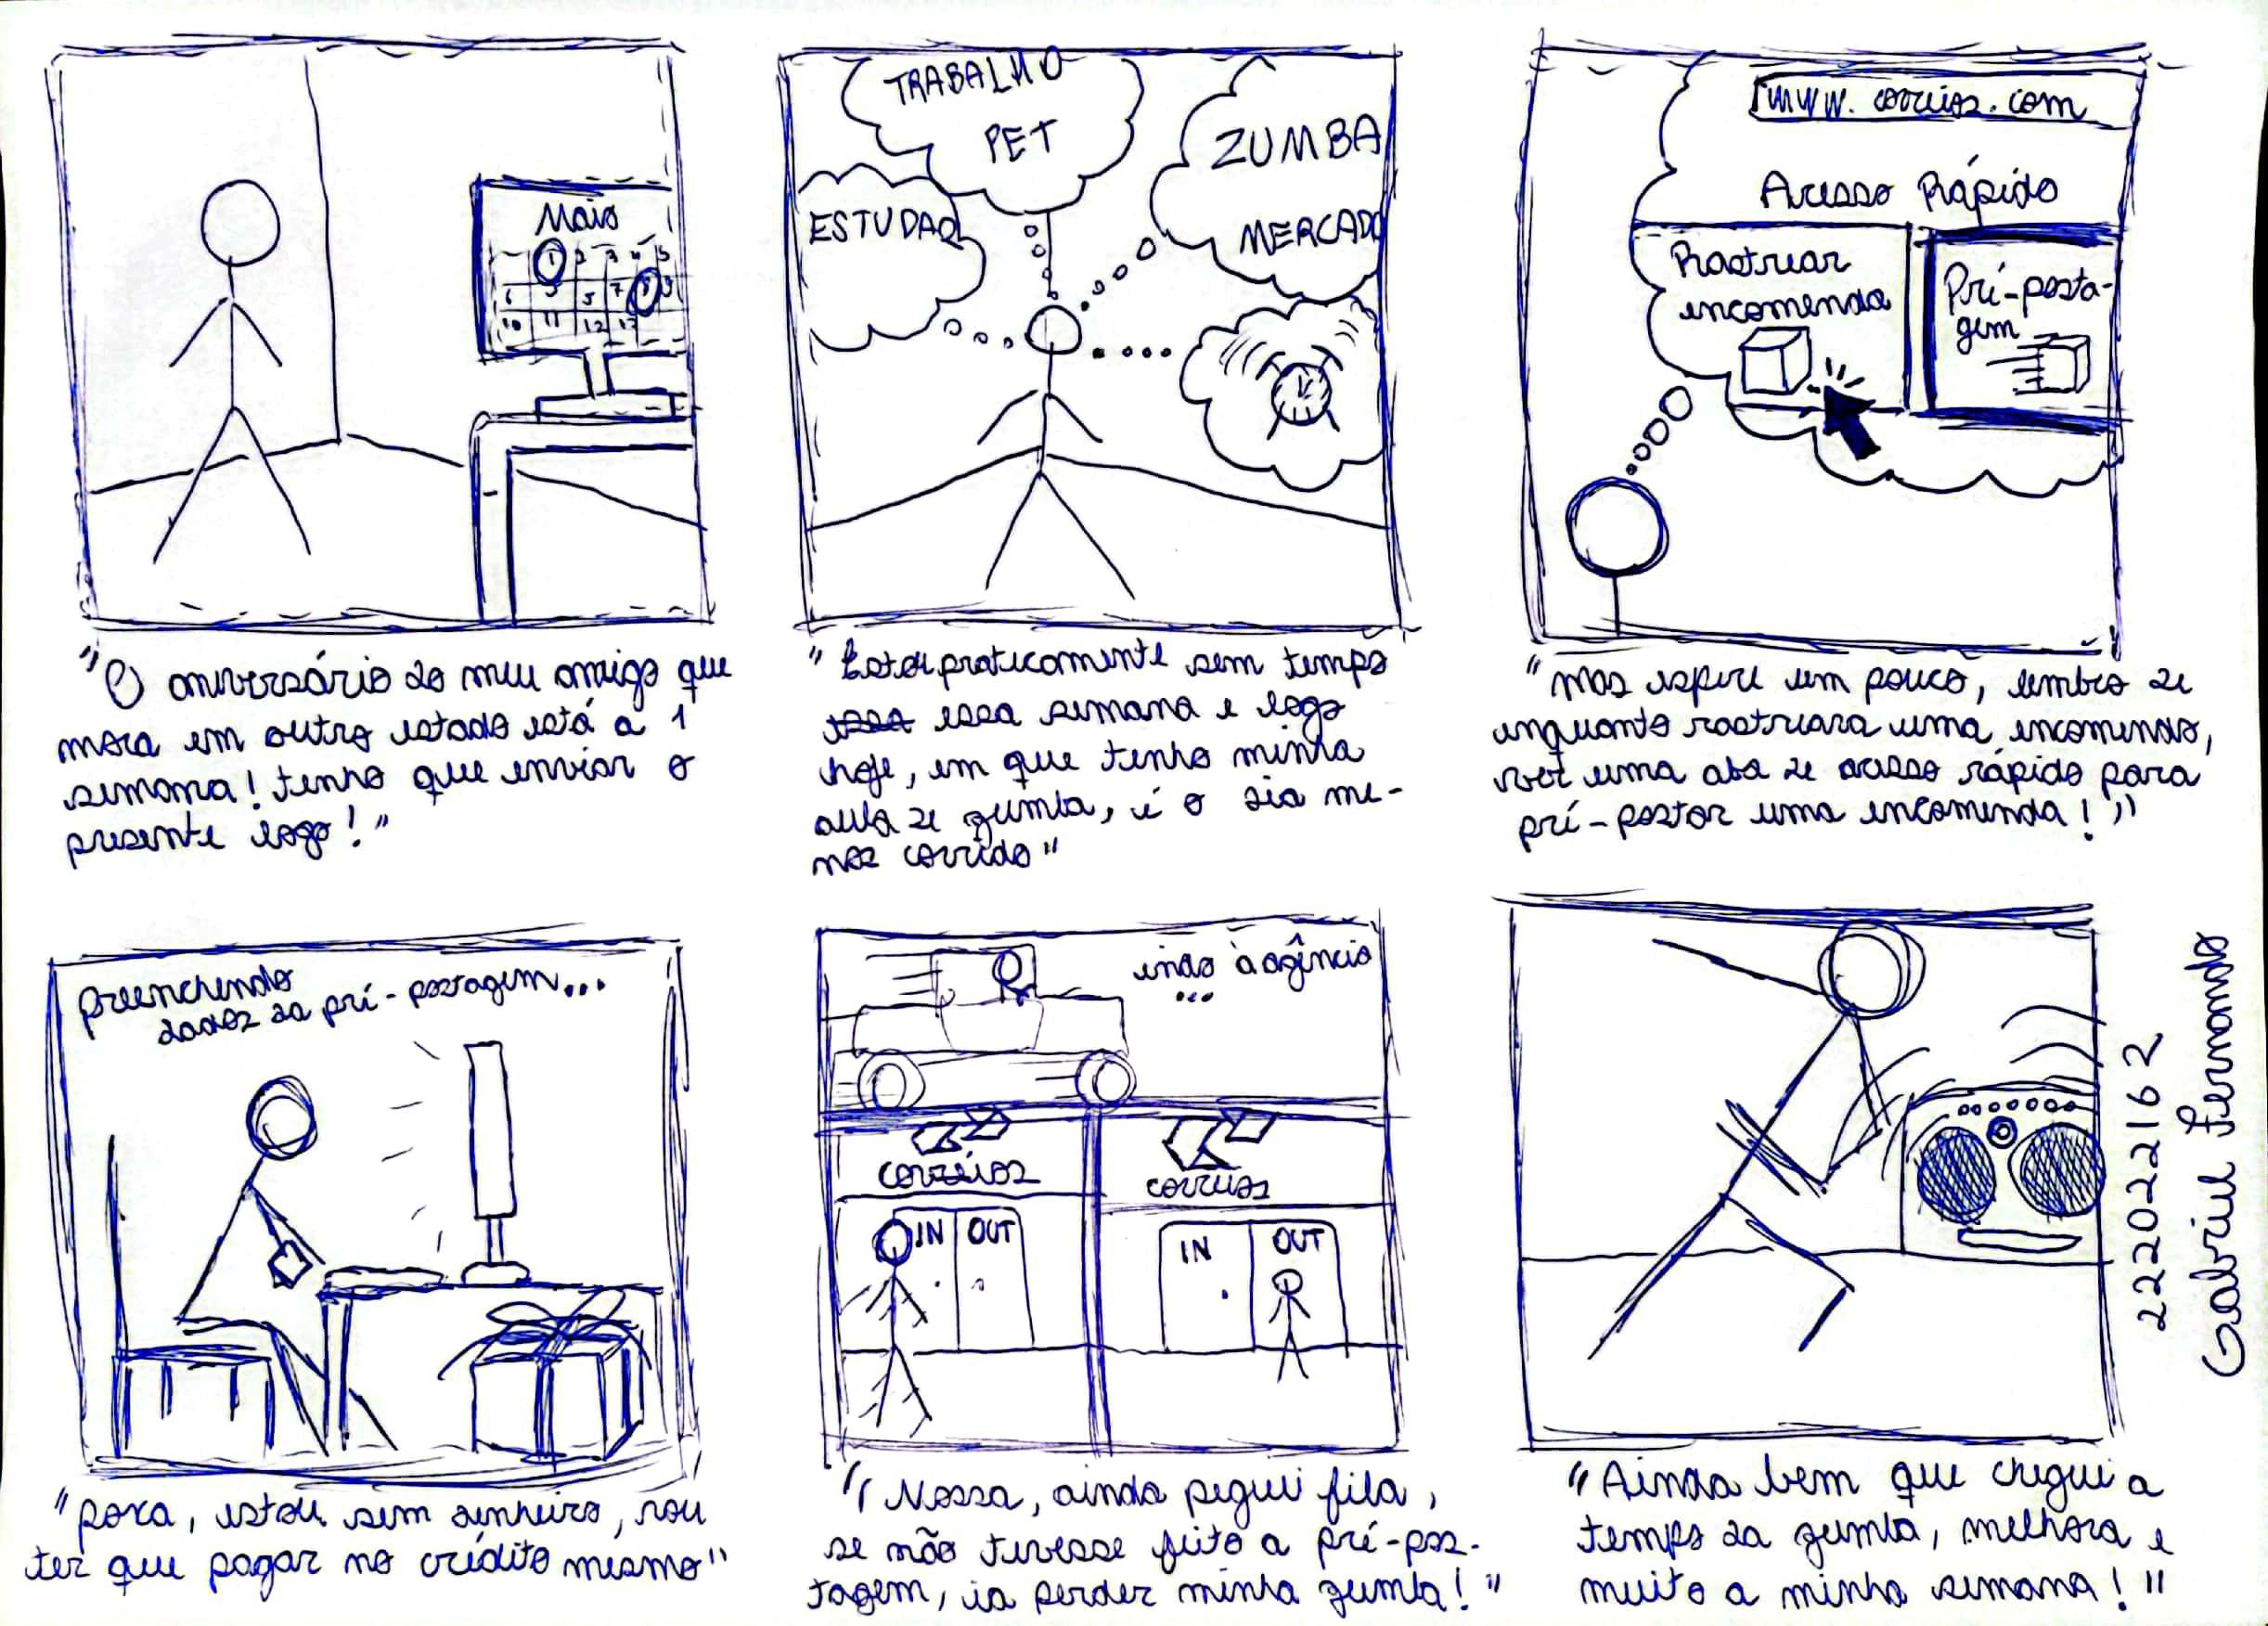 Maio
1 2 3 4 5
10 11 12 13
"O aniversário do meu amigo que
mora em outro estado está a 1
semana! tenho que enviar o
presente logo!"
TRABALHO
PET
ZUMBA
MERCADO
ESTUDAR
"Estou praticamente sem tempo
essa semana e logo
hoje, em que tenho minha
aula de zumba, é o dia me-
nos corrido"
www.correios.com
Acesso Rápido
Rastrear
encomenda
Pré-posta-
gem
"mas espere um pouco, lembro de
enquanto rastreara uma encomenda,
ver uma aba de acesso rápido para
pré-postar uma encomenda!"
preenchendo
dados da pré-postagem...
"poxa, estou sem dinheiro, vou
ter que pagar no crédito mesmo"
indo à agência
...
correios
correios
IN OUT
IN OUT
"Nossa, ainda peguei fila,
se não tivesse feito a pré-pos-
tagem, ia perder minha zumba!"
"Ainda bem que cheguei a
tempo da zumba, melhora e
muito a minha semana!"
222022162
Gabriel Fernando